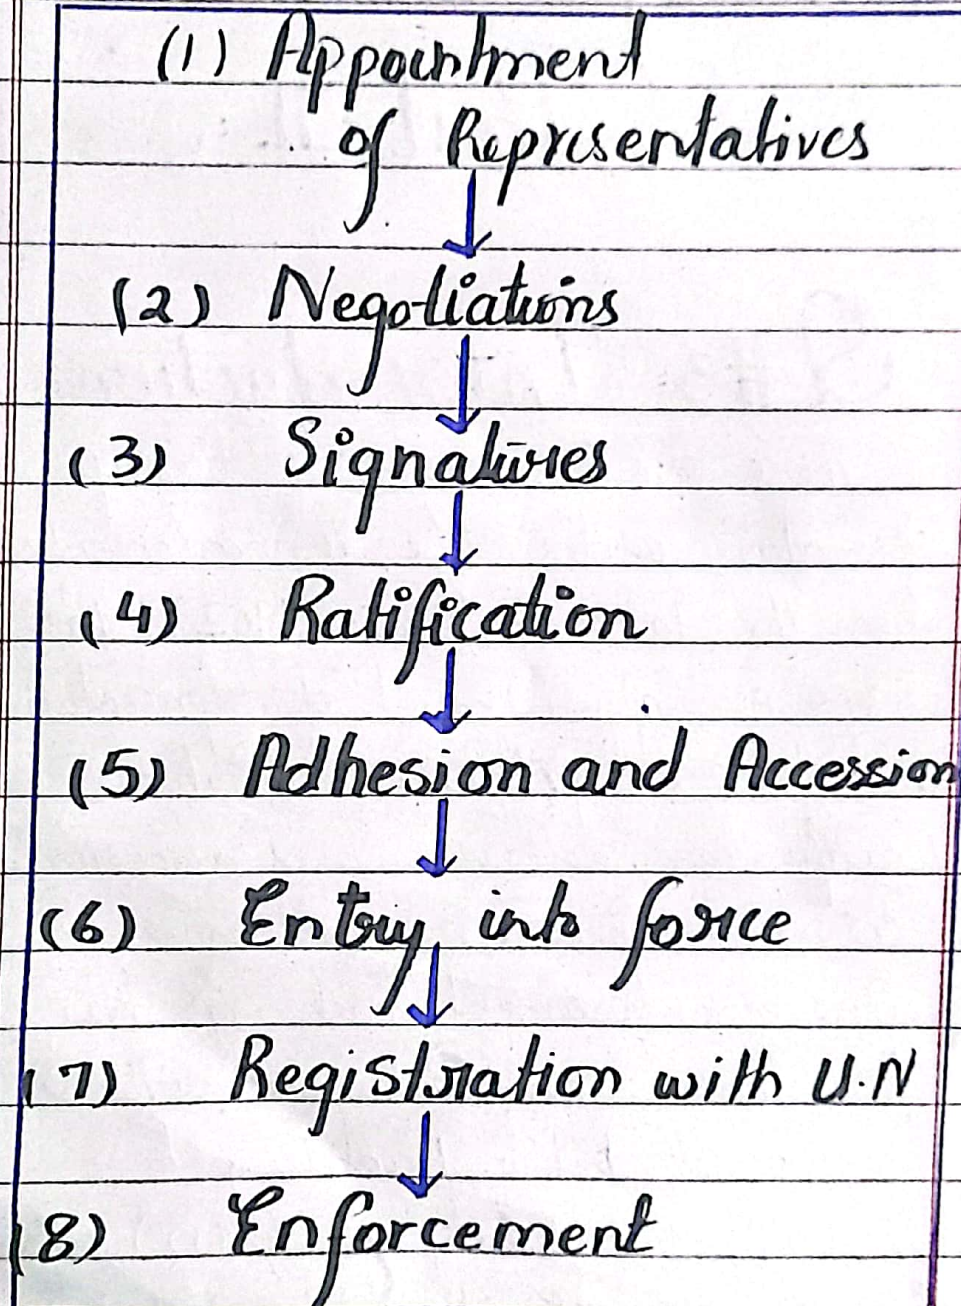 (1) Appointment
of Representatives
(2) Negotiations
(3) Signatures
(4) Ratification
(5) Adhesion and Accession
(6) Entry into force
(7) Registration with U.N
(8) Enforcement